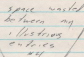 space wasted
between my
illustrious
entries